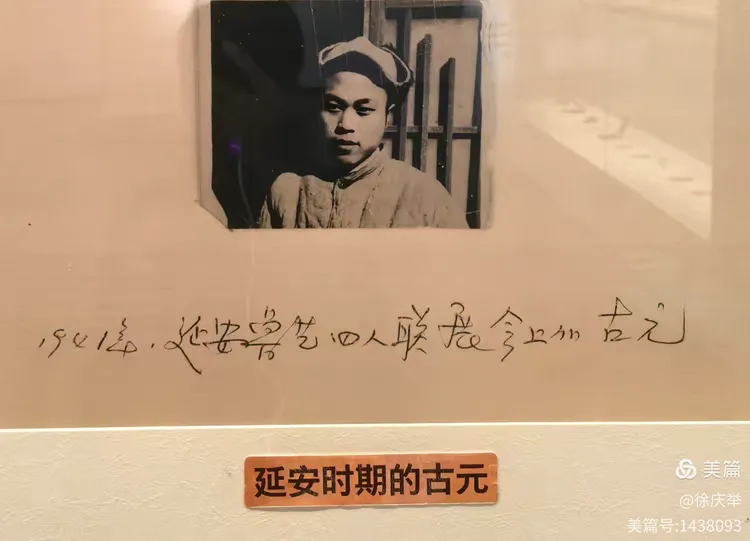 1941年，延安鲁艺四人联展会上的古元
延安时期的古元
美篇
@徐庆举
美篇号:1438093